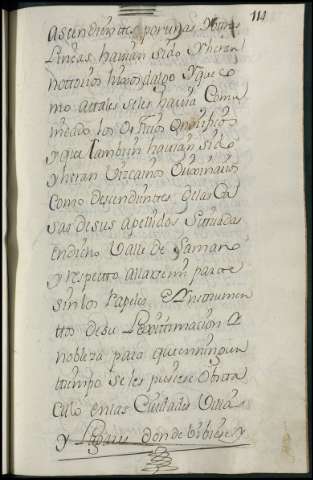 114
ascendientes por unas y otras
Lineas, havian sido y heran
nottorios hixosdalgo y que co
mo atales seles havia Comu
nicado los
y que tambien havian sido
y heran Vizcainos Originarios
como descendientes de las Ca
sas de sus apellidos Situadas
en dicho Valle de
y respectto allarse mi parte
sin los Papeles, e Instrumen
ttos de su Lexitimacion e
nobleza para que en ningun
tiempo se les pusiese Obsta
culo en las Ciudades Villas
y Lugares donde vibiese y